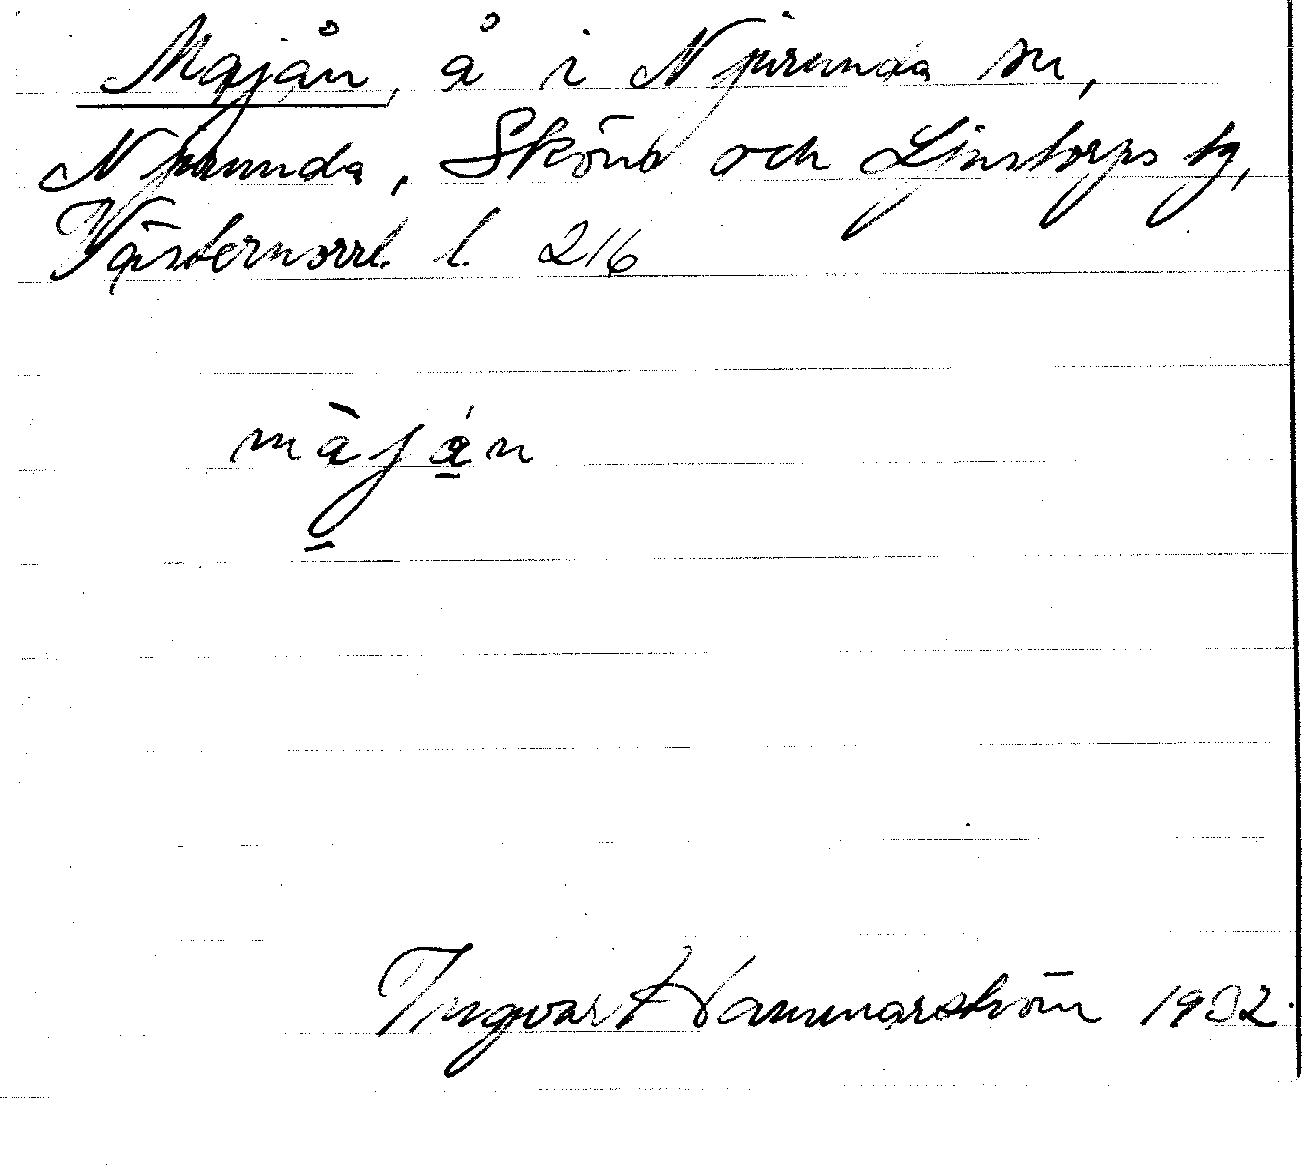 Majån, å i Njurunda sn,
Njurunda, Sköns och Ljustorps tg,
Västernorrl. l. 216
màján
Ingvar Hammarström 1932.